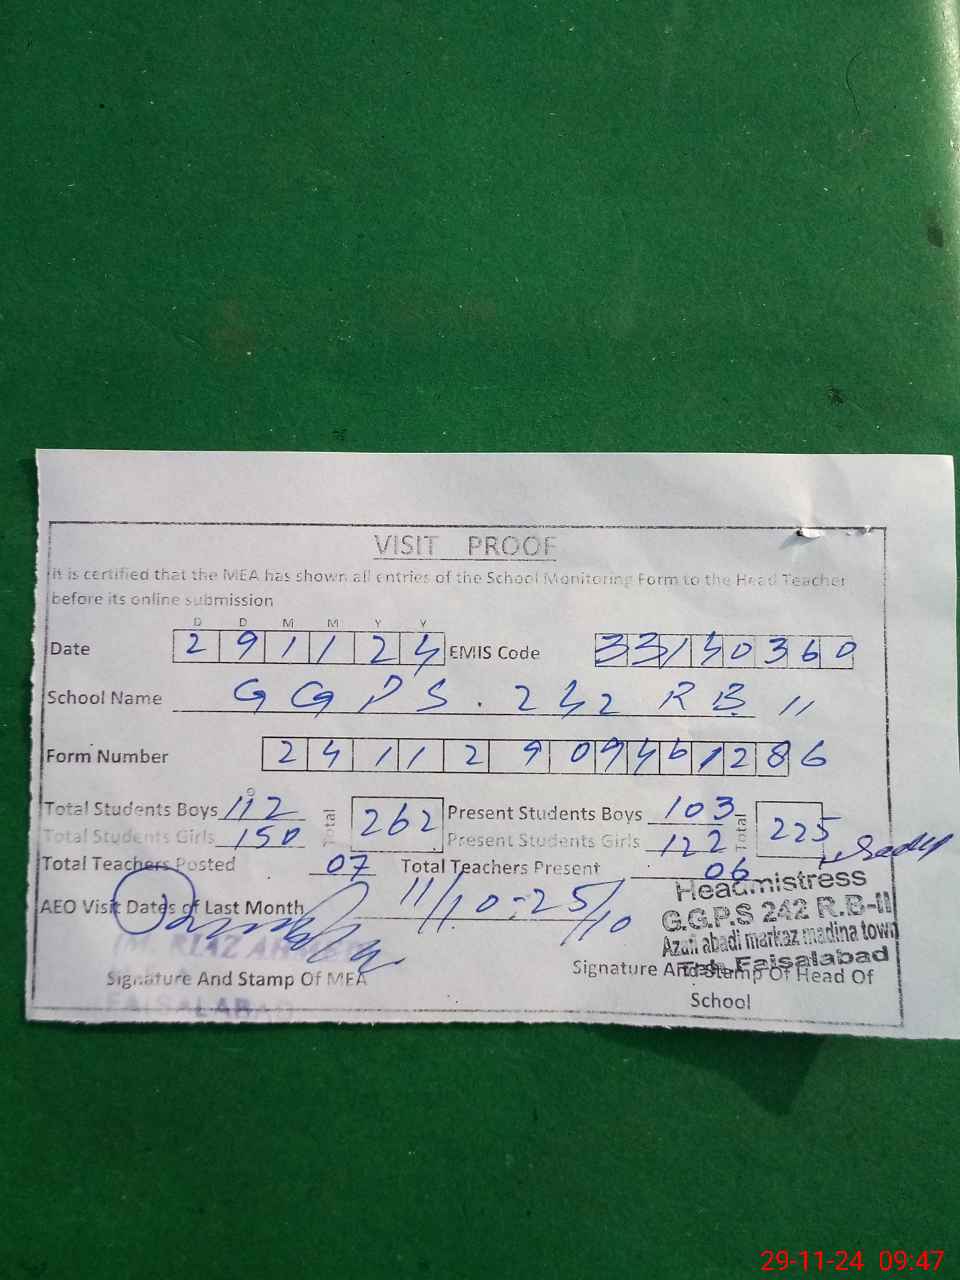 VISIT PROOF
it is certified that the MEA has shown all entries of the School Monitoring Form to the Head Teacher
before its online submission
D D M M Y Y
Date 2 9 1 1 2 4 EMIS Code 3 3 1 4 0 3 6 0
School Name G G P S . 242 R B 11
Form Number 2 4 1 1 2 9 0 9 4 6 1 2 8 6
Total Students Boys 112 Total 262 Present Students Boys 103 Total 225
Total Students Girls 150 Present Students Girls 122
Total Teachers Posted 07 Total Teachers Present 06
AEO Visit Dates of Last Month 11/10 - 25/10
Headmistress
G.G.P.S 242 R.B-II
Azafi abadi markaz madina town
Teh. Faisalabad
M. RIAZ AHMED
Signature And Stamp Of MEA
FAISALABAD
Signature And Stamp Of Head Of
School
29-11-24 09:47